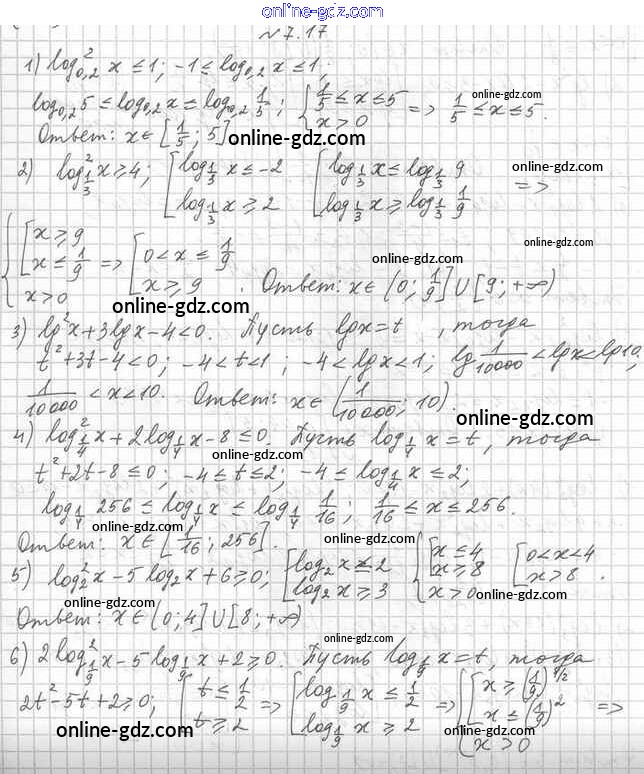 online-gdz.com
№7.17
1) log²_{0,2} x ≤ 1; -1 ≤ log_{0,2} x ≤ 1;
log_{0,2} 5 ≤ log_{0,2} x ≤ log_{0,2} 1/5; { 1/5 ≤ x ≤ 5 x > 0 => 1/5 ≤ x ≤ 5.
online-gdz.com
Ответ: x ∈ [1/5; 5]
online-gdz.com
2) log²_{1/3} x ≥ 4; [ log_{1/3} x ≤ -2 log_{1/3} x ≥ 2 [ log_{1/3} x ≤ log_{1/3} 9 log_{1/3} x ≥ log_{1/3} 1/9 =>
online-gdz.com
{ [ x ≥ 9 x ≤ 1/9 x > 0 => [ 0 < x ≤ 1/9 x ≥ 9 . Ответ: x ∈ (0; 1/9] ∪ [9; +∞)
online-gdz.com
online-gdz.com
online-gdz.com
3) lg²x + 3lgx - 4 < 0. Пусть lgx = t , тогда
t² + 3t - 4 < 0; -4 < t < 1 ; -4 < lgx < 1; lg 1/10000 < lgx < lg10,
online-gdz.com
1/10000 < x < 10. Ответ: x ∈ (1/10000; 10).
online-gdz.com
4) log²_{1/4} x + 2log_{1/4} x - 8 ≤ 0. Пусть log_{1/4} x = t, тогда
t² + 2t - 8 ≤ 0; -4 ≤ t ≤ 2; -4 ≤ log_{1/4} x ≤ 2;
online-gdz.com
log_{1/4} 256 ≤ log_{1/4} x ≤ log_{1/4} 1/16; 1/16 ≤ x ≤ 256.
online-gdz.com
Ответ: x ∈ [1/16; 256].
online-gdz.com
5) log²_2 x - 5 log_2 x + 6 ≥ 0; [ log_2 x ≤ 2 log_2 x ≥ 3 { [ x ≤ 4 x ≥ 8 x > 0 [ 0 < x < 4 x > 8 .
online-gdz.com
Ответ: x ∈ (0; 4] ∪ [8; +∞)
online-gdz.com
6) 2log²_{1/9} x - 5log_{1/9} x + 2 ≥ 0. Пусть log_{1/9} x = t, тогда
online-gdz.com
2t² - 5t + 2 ≥ 0; [ t ≤ 1/2 t ≥ 2 => [ log_{1/9} x ≤ 1/2 log_{1/9} x ≥ 2 => { [ x ≥ (1/9)^{1/2} x ≤ (1/9)² x > 0 =>
online-gdz.com
online-gdz.com